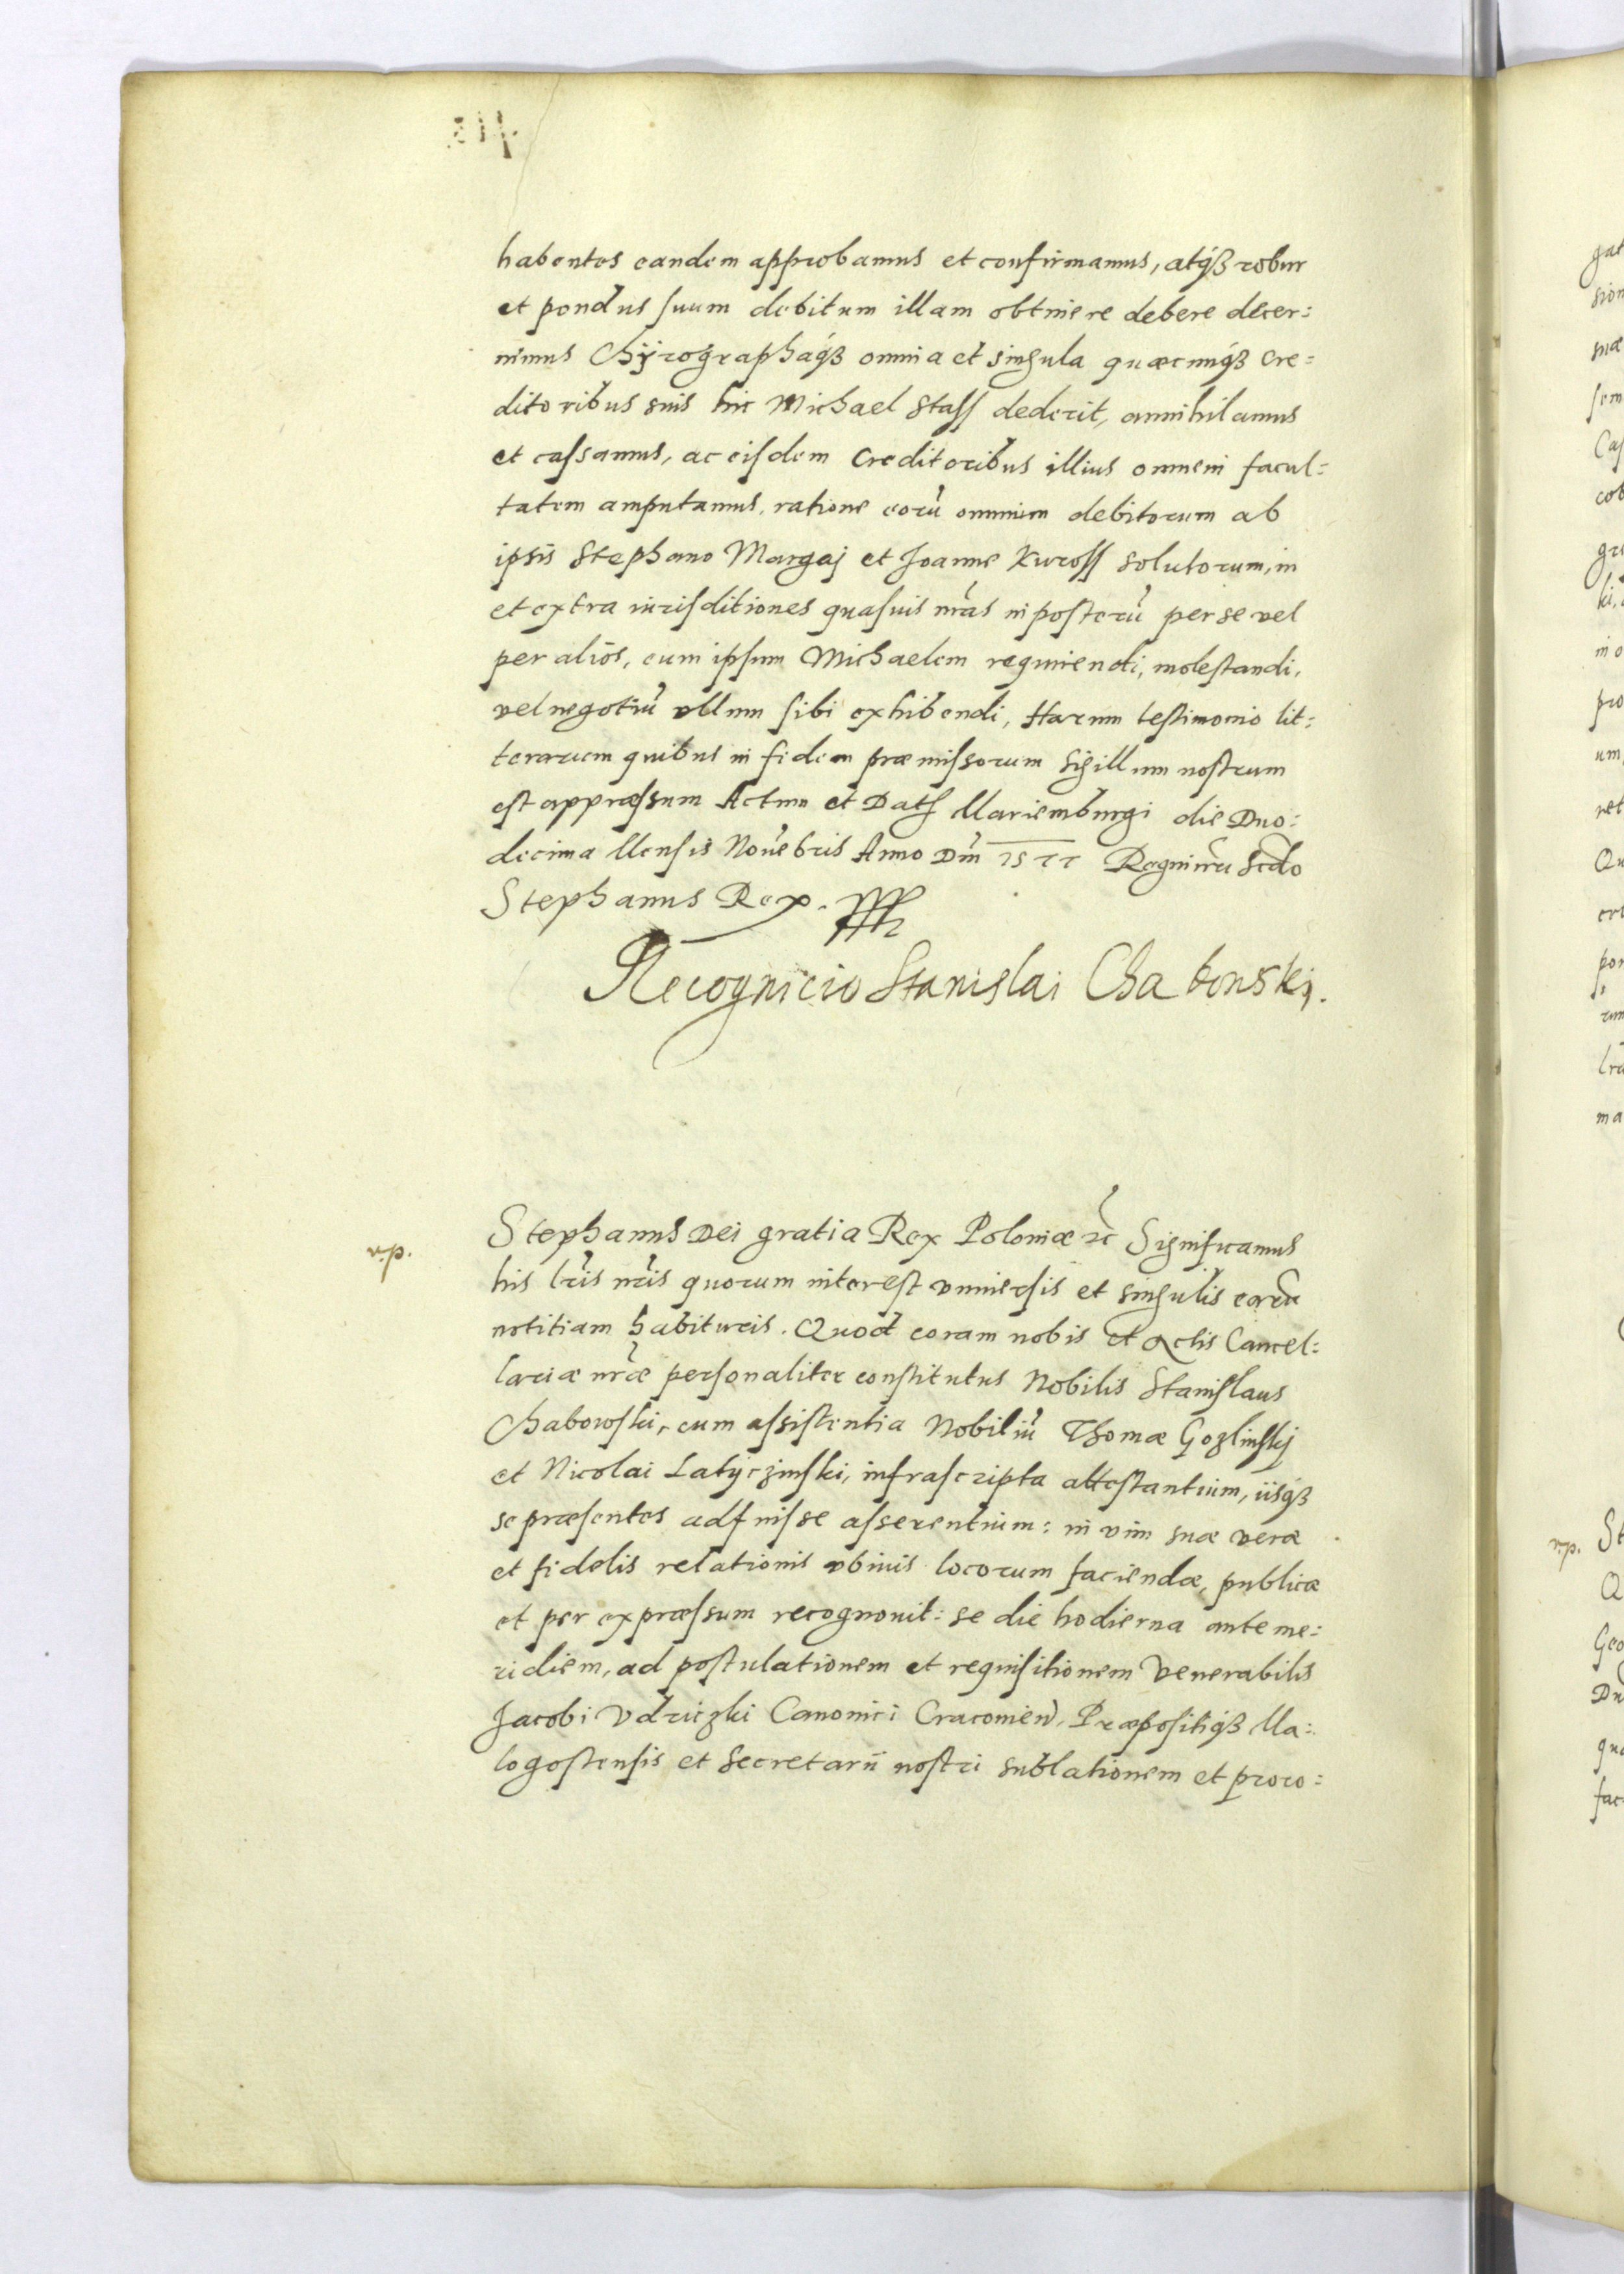 habentes eandem approbamus et confirmamus, atq́ꝫ robur
et pondus suum debitum illam obtinere debere decer:
nimus Chÿrographaq́ꝫ omnia et singula quæcunq́ꝫ Cre=
ditoribus suis hic Michael Stass dederit, annihilamus
et cassamus, ac eisdem Creditoribus illius omnem facul=
tatem amputamus, ratione eorũ omnium debitorum ab
ipsis Stephano Margaj et Joanne Kuross solutorum, in
et extra iurisditiones quasuis nr̃as in posterũ per se vel
per alios, eum ipsum Michaelem requirendi, molestandi,
vel negotiũ vllum sibi exhibendi, Harum testimonio lit:
terarum quibus in fidem præmissorum Sigillum nostrum
est appræssum Actum et Dat Mariemburgi die Duo:
decima Mensis Novẽbris Anno Dñi 1577 Regni nr̃i Scdo
Stephanus Rex.
Recognicio Stanislai Chabowski.
v.p.
Stephanus Dei gratia Rex Poloniæ ꝛc Significamus
his lr̃is nr̃is quorum interest vniuersis et singulis earũ
notitiam habituris. Quod coram nobis et Actis Cancel:
lariæ nr̃æ personaliter constitutus Nobilis Stanislaus
Chabowski, cum assistentia Nobiliũ Thomæ Gozlinskj
et Nicolai Latyczinski, infrascripta attestantium, iisq́ꝫ
se præsentes adfuisse asserentium: in vim suæ veræ
et fidelis relationis vbiuis locorum faciendæ, publicæ
et per expræssum recognouit: se die hodierna ante me:
ridiem, ad postulationem et requisitionem Venerabilis
Jacobi Vdriczki Canonici Cracovień, Præpositiq́ꝫ Ma:
logostensis et Secretarii nostri sublationem et proro: